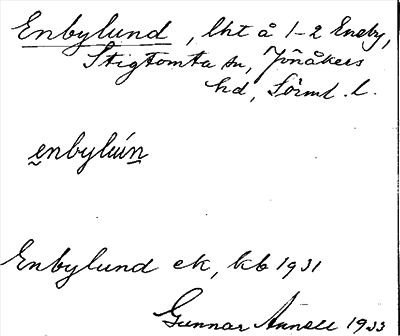 Enbylund, lht å 1-2 Eneby,
Stigtomta sn, Jönåkers
hd, Sörml. l.
enbylún
Enbylund ek, kb 1931
Gunnar 1933